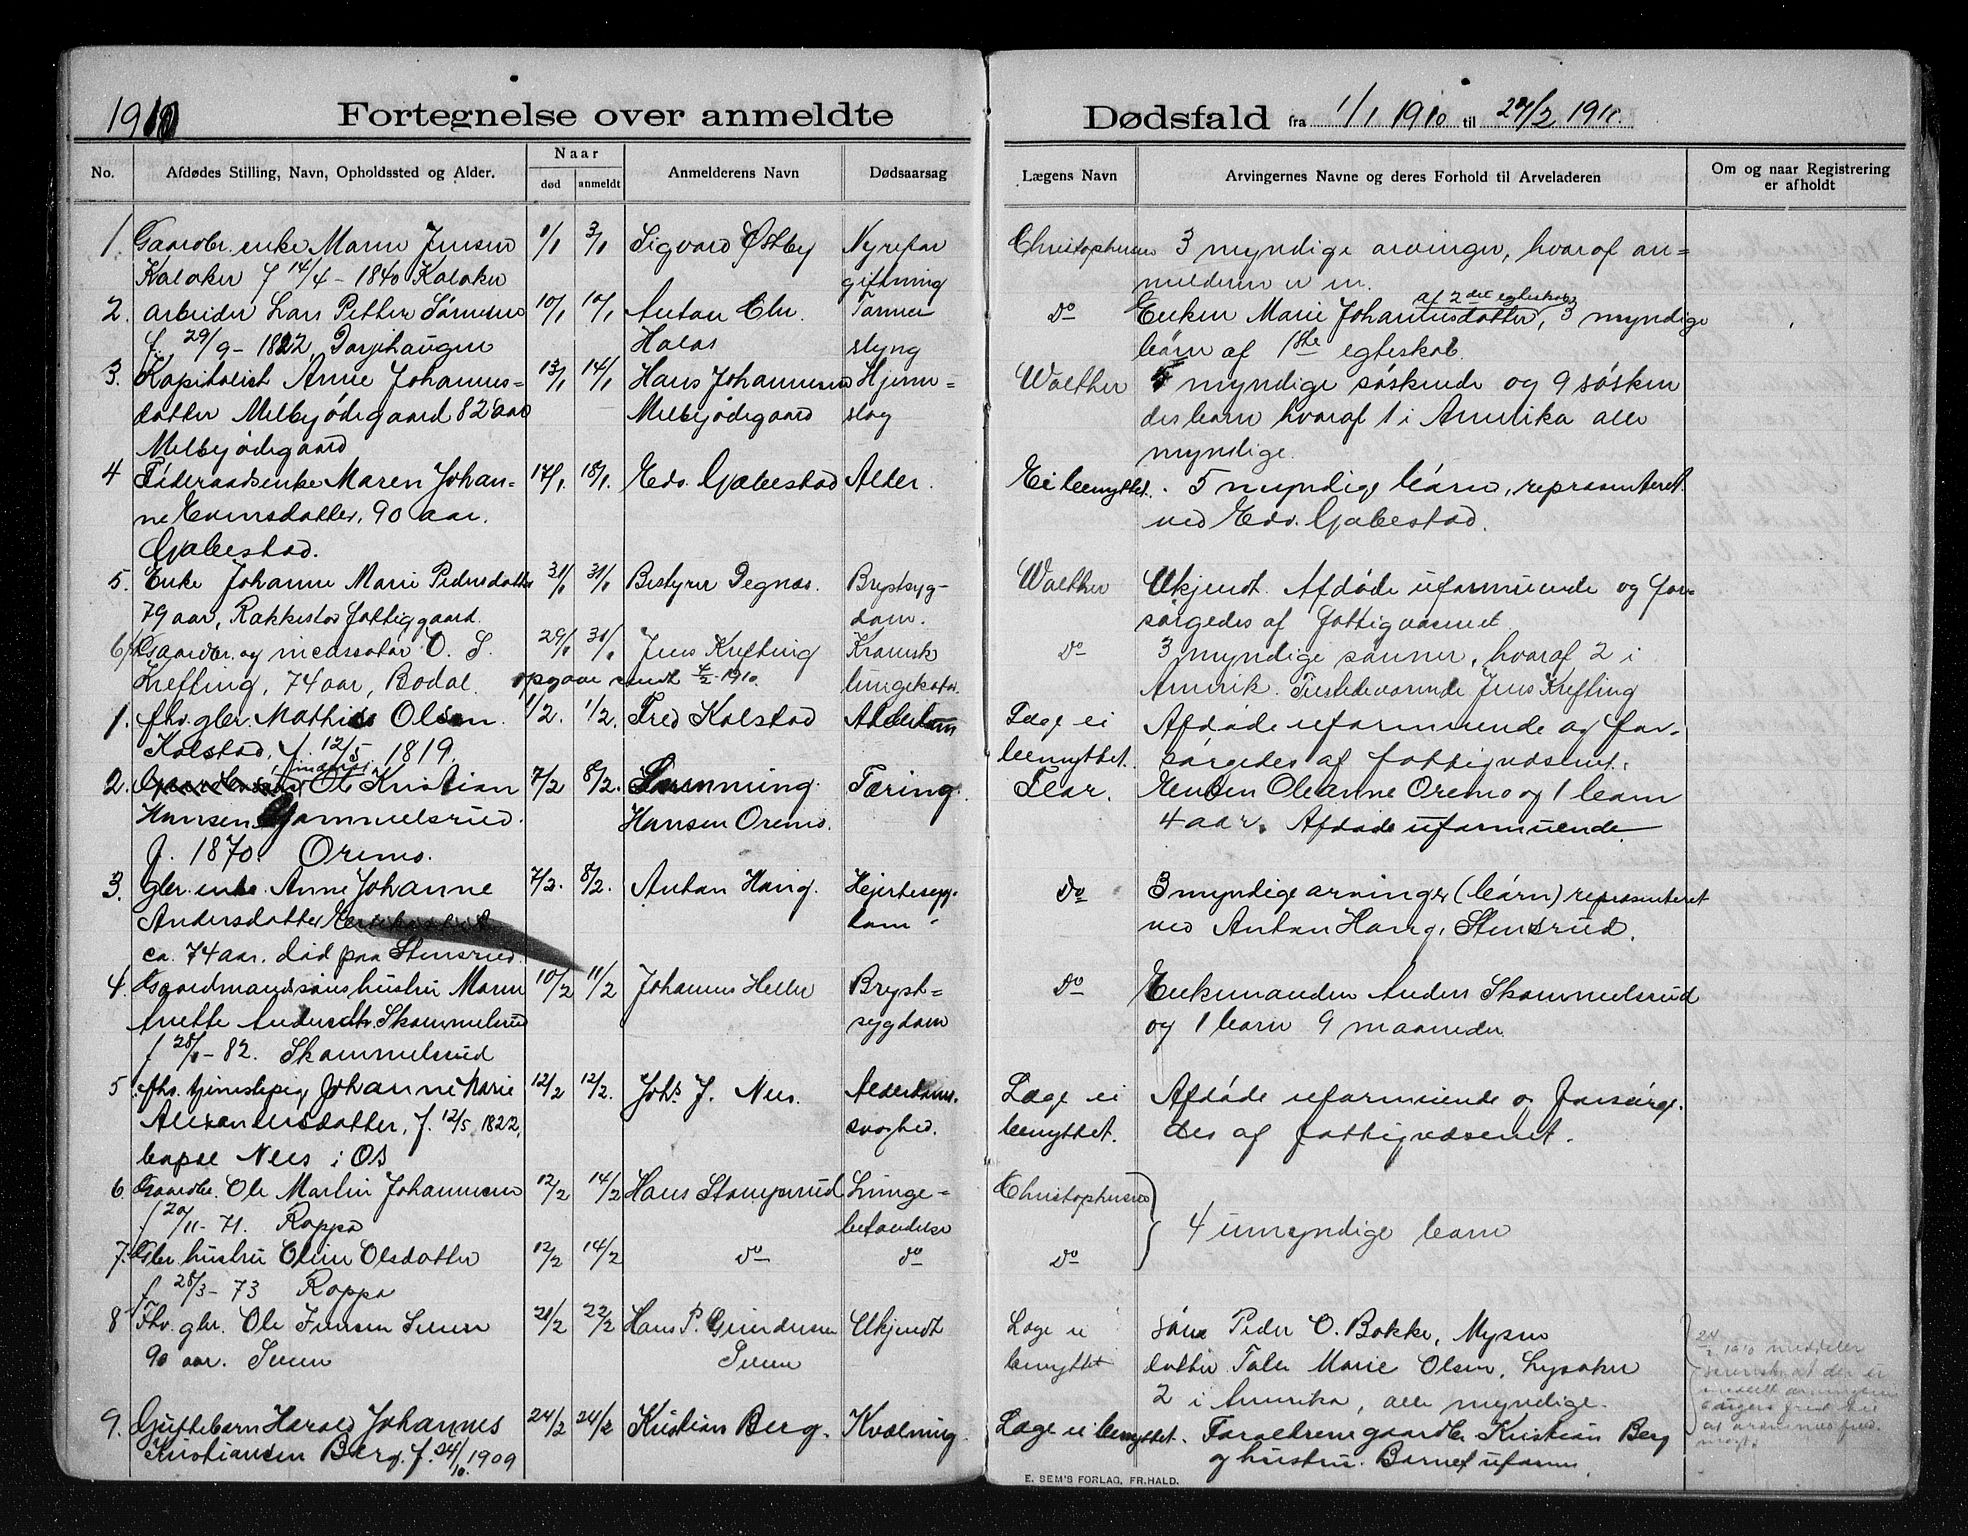 1910
Fortegnelse over anmeldte
Dødsfald fra 1/1 1910 til 24/2 1910.
No.
Afdødes Stilling, Navn, Opholdssted og Alder.
Naar
død
anmeldt
Anmelderens Navn
Dødsaarsag
Lægens Navn
Arvingernes Navne og deres Forhold til Arveladeren
Om og naar Registrering
er afholdt
1. Gaardbr. enke Maren Jensen 1/1 3/1 Sigvard Østby Nyrefor Christophersen 3 myndige arvinger, hvoraf an=
Kolaker f 14/4 - 1840 Kolaker giftning melderen er en.
2. Arbeider Lars Petter Sørensen 10/1 10/1 Anton Chr. Tarmer do Enken Marie Johannesdatter, af 2det egteskab, 3 myndige
f. 29/9 - 1822 Holos slyng børn af 1ste egteskab.
3. Kapitalist Anne Johannes= 13/1 14/1 Hans Johannesen Hjerne= Walther myndige søskende og 9 søsken
datter Melbyødegaard 82 aar Melbyødegaard slag desbarn hvoraf 1 i Amerika alle
Melbyødegaard myndige.
4 Føderaadsenke Maren Johan= 17/1 18/1 Edv. Gjølestad Alder. Ei benyttet. 5 myndige børn, repræsenteret
ne Evensdatter, 90 aar. ved Edv. Gjølestad.
Gjølestad.
5. Enke Johanne Marie Pedersdatter 31/1 31/1 Bestyrer Degnæs. Brystsyg= Walther Ukjendt. Afdøde uformuende og for=
79 aar, Rakkestad fattiggaard. dom. sørgedes af fattigvæsenet.
6. Gaardbr. og incassator O. S. 29/1 31/1 Jens Krefting Kronisk do 3 myndige sønner, hvoraf 2 i
Krefting, 74 aar, Bodal. opgave sendt 4/2 1910. lungekatar. Amerik. Tilstedeværende Jens Krefting
1. fhv. gbr. Mathis Olsen 1/2. 1/2. Fred Kolstad Alderdom Læge ei Afdøde uformuende og for=
Kolstad, f. 12/5 1819. benyttet. sørgedes af fattigvæsenet.
2. Ole Kristian 7/2 8/2. Flemming Tæring. Flor. Enken Oleanne Oremo og 1 barn
Hansen Gammelsrud. Hansen Oremo. 4 aar. Afdøde uformuende
f. 1870. Oremo.
3. Gbr. enke Anne Johanne 7/2. 8/2. Anton Haug. Hjertesyg= do 3 myndige arvinger (børn) repræsenteret
Andersdatter dom ved Anton Haug, Stensrud.
ca. 74 aar. død paa Stensrud.
4. Gaardmandsønshustru Maren 10/2 11/2 Johannes Heller Bryst= do Enkemanden Anders Skammelsrud
Anette Andersdtr. Skammelsrud sygdom og 1 barn 9 maaneder
f 28/1 - 82. Skammelsrud
5. fhv. tjenestepige Johanne Marie 12/2 12/2. Johs J. Nes. Alderdoms. Læge ei Afdøde uformuende og forsørge.
Alexandersdatter, f. 12/5 1822, svaghed. benyttet. des af fattigvæsenet.
Nes i Os
6. Gaardbr. Ole Martin Johannesen 12/2 14/2 Hans Stomperud Lunge= Christophersen 4 umyndige børn
f 20/11 - 71. Rappo betændelse
7. Gbr. hustru Oline Olsdatter 12/2 14/2 do do do
f 28/3 - 73 Rappo
8 Fhv. gbr. Ole Jensen 21/2 22/2 Hans P. Gundersen Ukjendt Læge ei søn Peder O. Bakke, Mysen
90 aar. benyttet datter Tale Marie Olsen, Lysaker
2 i Amerika, alle myndige.
24/2 1910 meddeler
9. Giftebarn Harald Johannes 24/2 24/2 Kristian Berg. Kvælning. Læge ei benyttet. Forældrene gaardbr Kristian Berg
Kristiansen Berg. f. 24/10. 1909 og hustru. Barnet uform.
E. SEM'S FORLAG, FR.HALD.